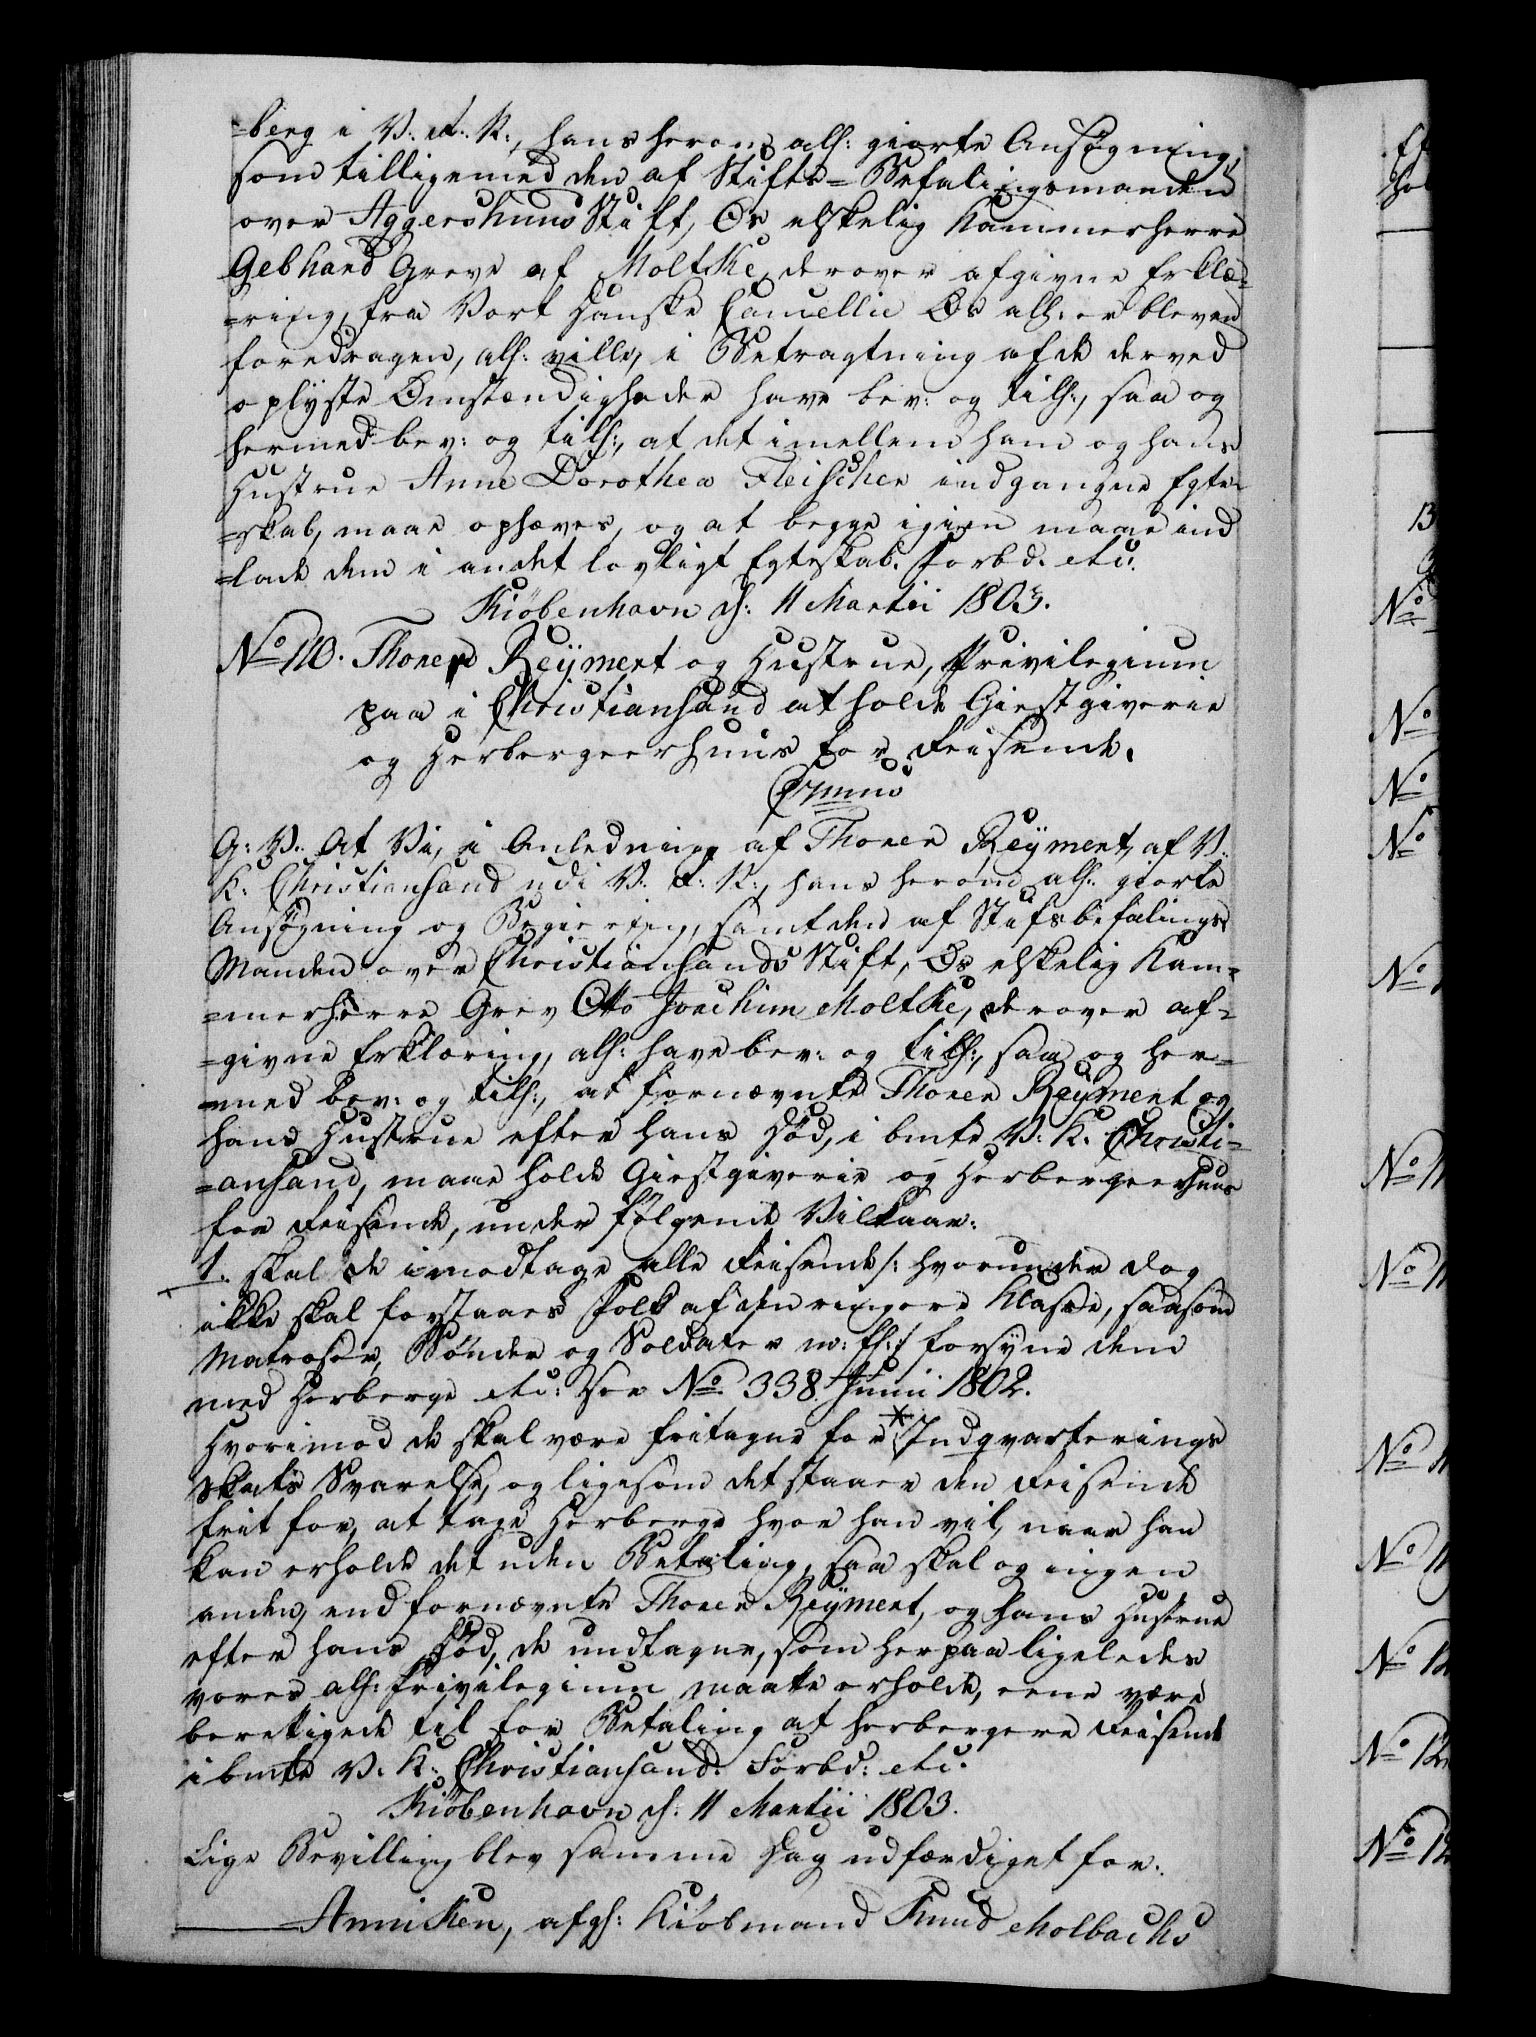 =berg i V: R: N:, hans herom als: giorte Ansøgning,
som tilligemed den af Stifts-Befalingsmanden
over Aggershuus Stift, Os elskelig Kammerherre
Gebhard Greve af Moltke, derover afgivne Erklæ=
=ring, fra Vort Danske Cancellie Os als: er bleven
foredragen, als: ville, i Betragtning af de derved
oplyste Omstændigheder have bev: og tils:, saa og
hermed bev: og tils:, at det imellem ham og hans
Hustrue Anne Dorothea Fleischer indgangne Egte=
=skab, maae ophæves, og at begge igien maae ind
=lade dem i andet lovligt Egteskab. Forbd. etc.
Kiöbenhavn d: 11 Martii 1803.
No 110. Thore Reÿmert og Hustrue, Privilegium
paa i Christiansand at holde Giestgiverie
og Herbergeerhuus for Reisende.
Gmus
G: V. At Vi, i Anledning af Thore Reÿmert, af V.
K: Christiansand udi V. R: N:, hans herom als: giorte
Ansøgning og Begiering, samt den af Stiftsbefalings
Manden over Christiansands Stift, Os elskelig Kam=
=merherre Grev Otto Joachim Moltke, derover af=
=givne Erklæring, als: have bev: og tils:, saa og her=
=med bev: og tils:, at fornævnte Thore Reÿmert og
hans Hustrue efter hans Död, i bmte V. K. Christi=
=ansand, maae holde Giestgiverie og Herbergeerhuus
for Reisende, under følgende Vilkaar:
1. skal de imodtage alle Reisende /: hvorunder dog
ikke skal forstaaes Folk af den ringere Klasse, saasom
Matroser, Bönder og Soldater m: fl: :/ forsyne dem
med Herberge etc: See No. 338. Junii 1802.
Hvorimod de skal være fritagne for * Indqvarterings
Skats Svarelse, og ligesom det staaer den Reisende
frit for, at tage Herberge hvor han vil, naar han
kan erholde det uden Betaling, saa skal og ingen
anden, end fornævnte Thore Reÿmert, og hans Hustrue
efter hans Död, de undtagne, som herpaa ligeledes
vores als: Privilegium maatte erholde, eene være
berettigede til for Betaling at herbergere Reisende
i bmte V. K: Christiansand. Forbd: etc.
Kiöbenhavn d: 11 Martii 1803.
Lige Bevilling blev samme Dag udfærdiget for:
Anniken, afg: Kiöbmand Knud Molbachs